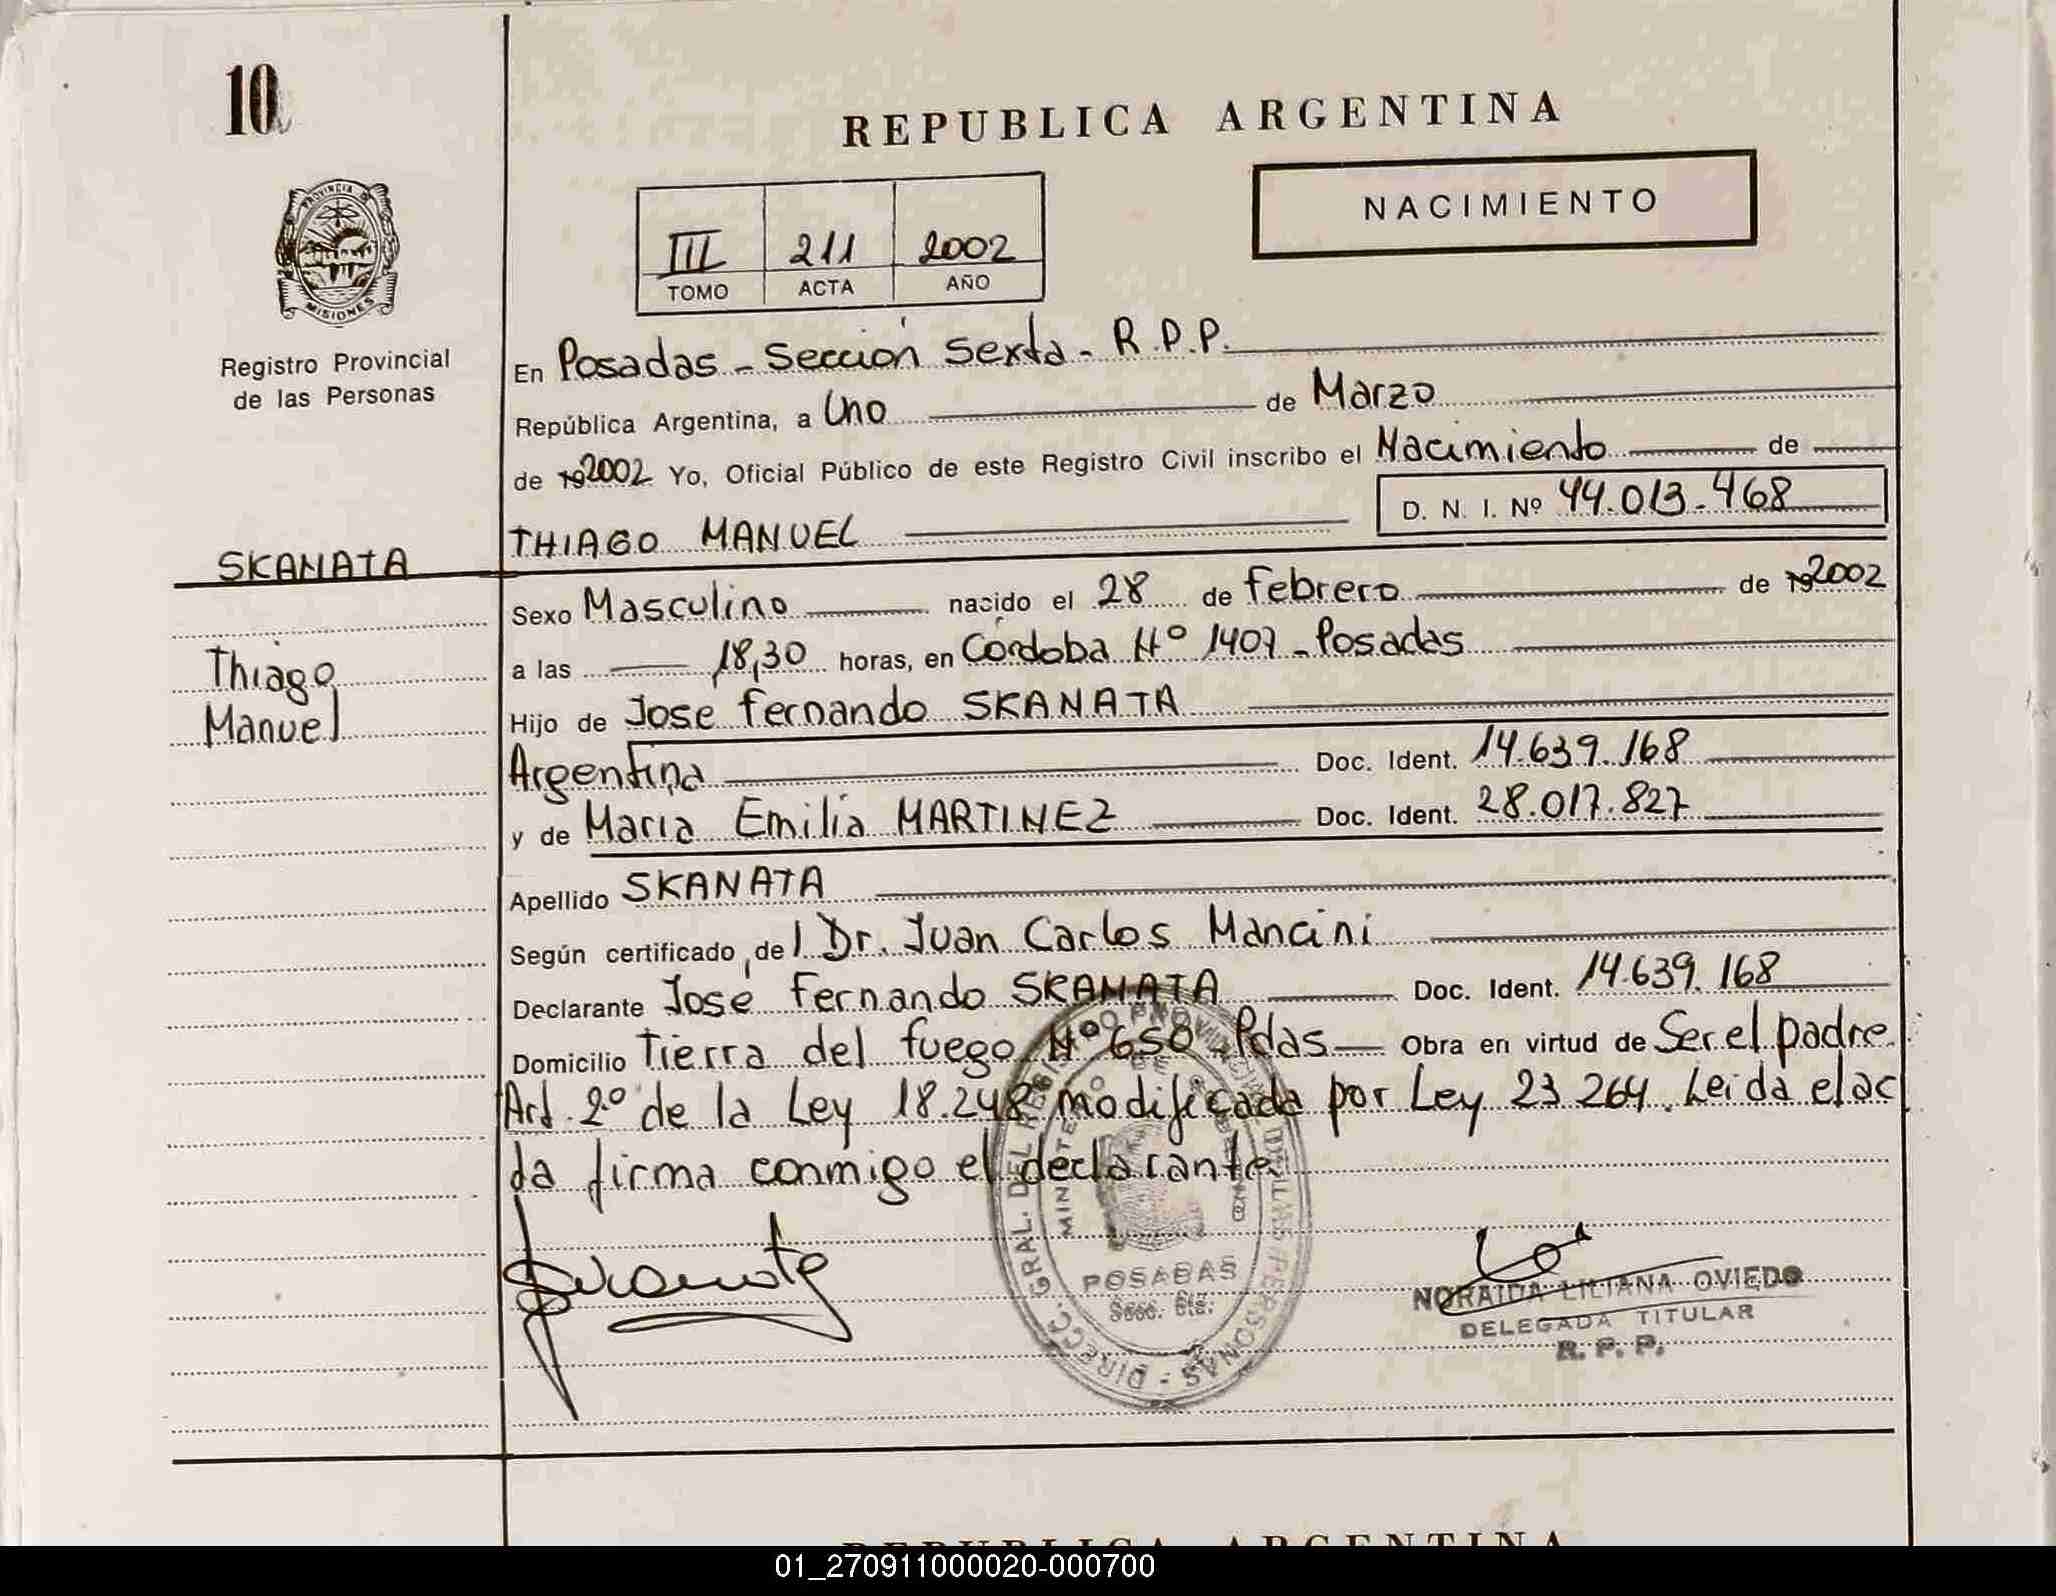 10
REPUBLICA ARGENTINA
NACIMIENTO
III 211 2002
TOMO ACTA AÑO
PROVINCIA DE
MISIONES
Registro Provincial
de las Personas
En Posadas - Sección Sexta - R.P.P.
República Argentina, a Uno de Marzo
de 192002 Yo, Oficial Público de este Registro Civil inscribo el Nacimiento de
D. N. I. Nº 44.013.468
THIAGO MANUEL
SKANATA
Thiago
Manuel
Sexo Masculino nacido el 28 de febrero de 192002
a las 18,30 horas, en Córdoba Nº 1407 - Posadas
Hijo de Jose fernando SKANATA
Argentina Doc. Ident. 14.639.168
y de María Emilia MARTINEZ Doc. Ident. 28.017.827
Apellido SKANATA
Según certificado de l Dr. Juan Carlos Mancini
Declarante José fernando SKANATA Doc. Ident. 14.639.168
Domicilio Tierra del fuego Nº 650 - Pdas Obra en virtud de Ser el padre.
Art. 2º de la Ley 18.248 modificada por Ley 23.264. Leida el ac
ta firma conmigo el declarante
DIRECC. GRAL. DEL REGISTRO PROVINCIAL DE LAS PERSONAS -
POSADAS
Secc. 6ta.
NORAIDA LILIANA OVIEDO
DELEGADA TITULAR
R. P. P.
REPUBLICA ARGENTINA
01_270911000020-000700